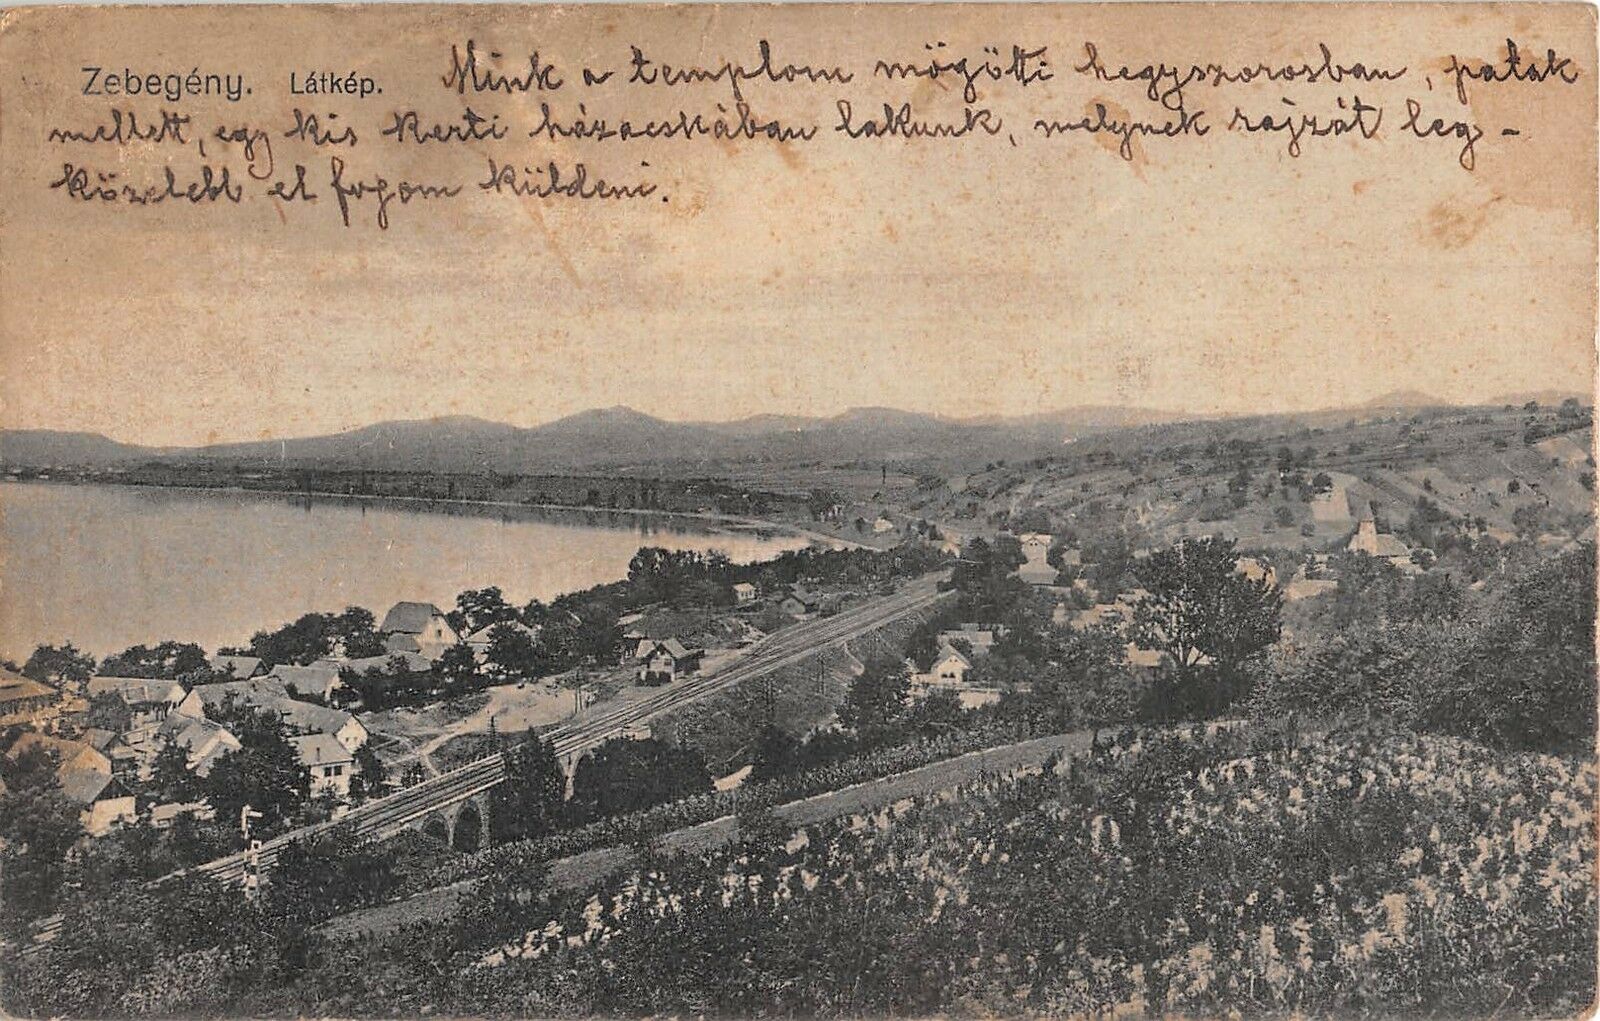 Zebegény. Látkép. Mink a templom mögötti hegyszorosban, patak
mellett, egy kis kerti házacskában lakunk, melynek rajzát leg-
közelebb el fogom küldeni.